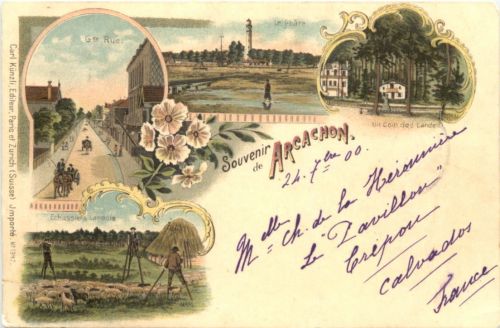 Gde Rue.
Le phare
Un Coin des Landes
Souvenir
de ARCACHON.
24. 7bre 00.
Echassiers Landais
Melle Ch. de la Héronnière
Le Pavillon
Crépon
Calvados
France
Carl Künzli, Editeur, Paris et Zurich (Suisse) Importé